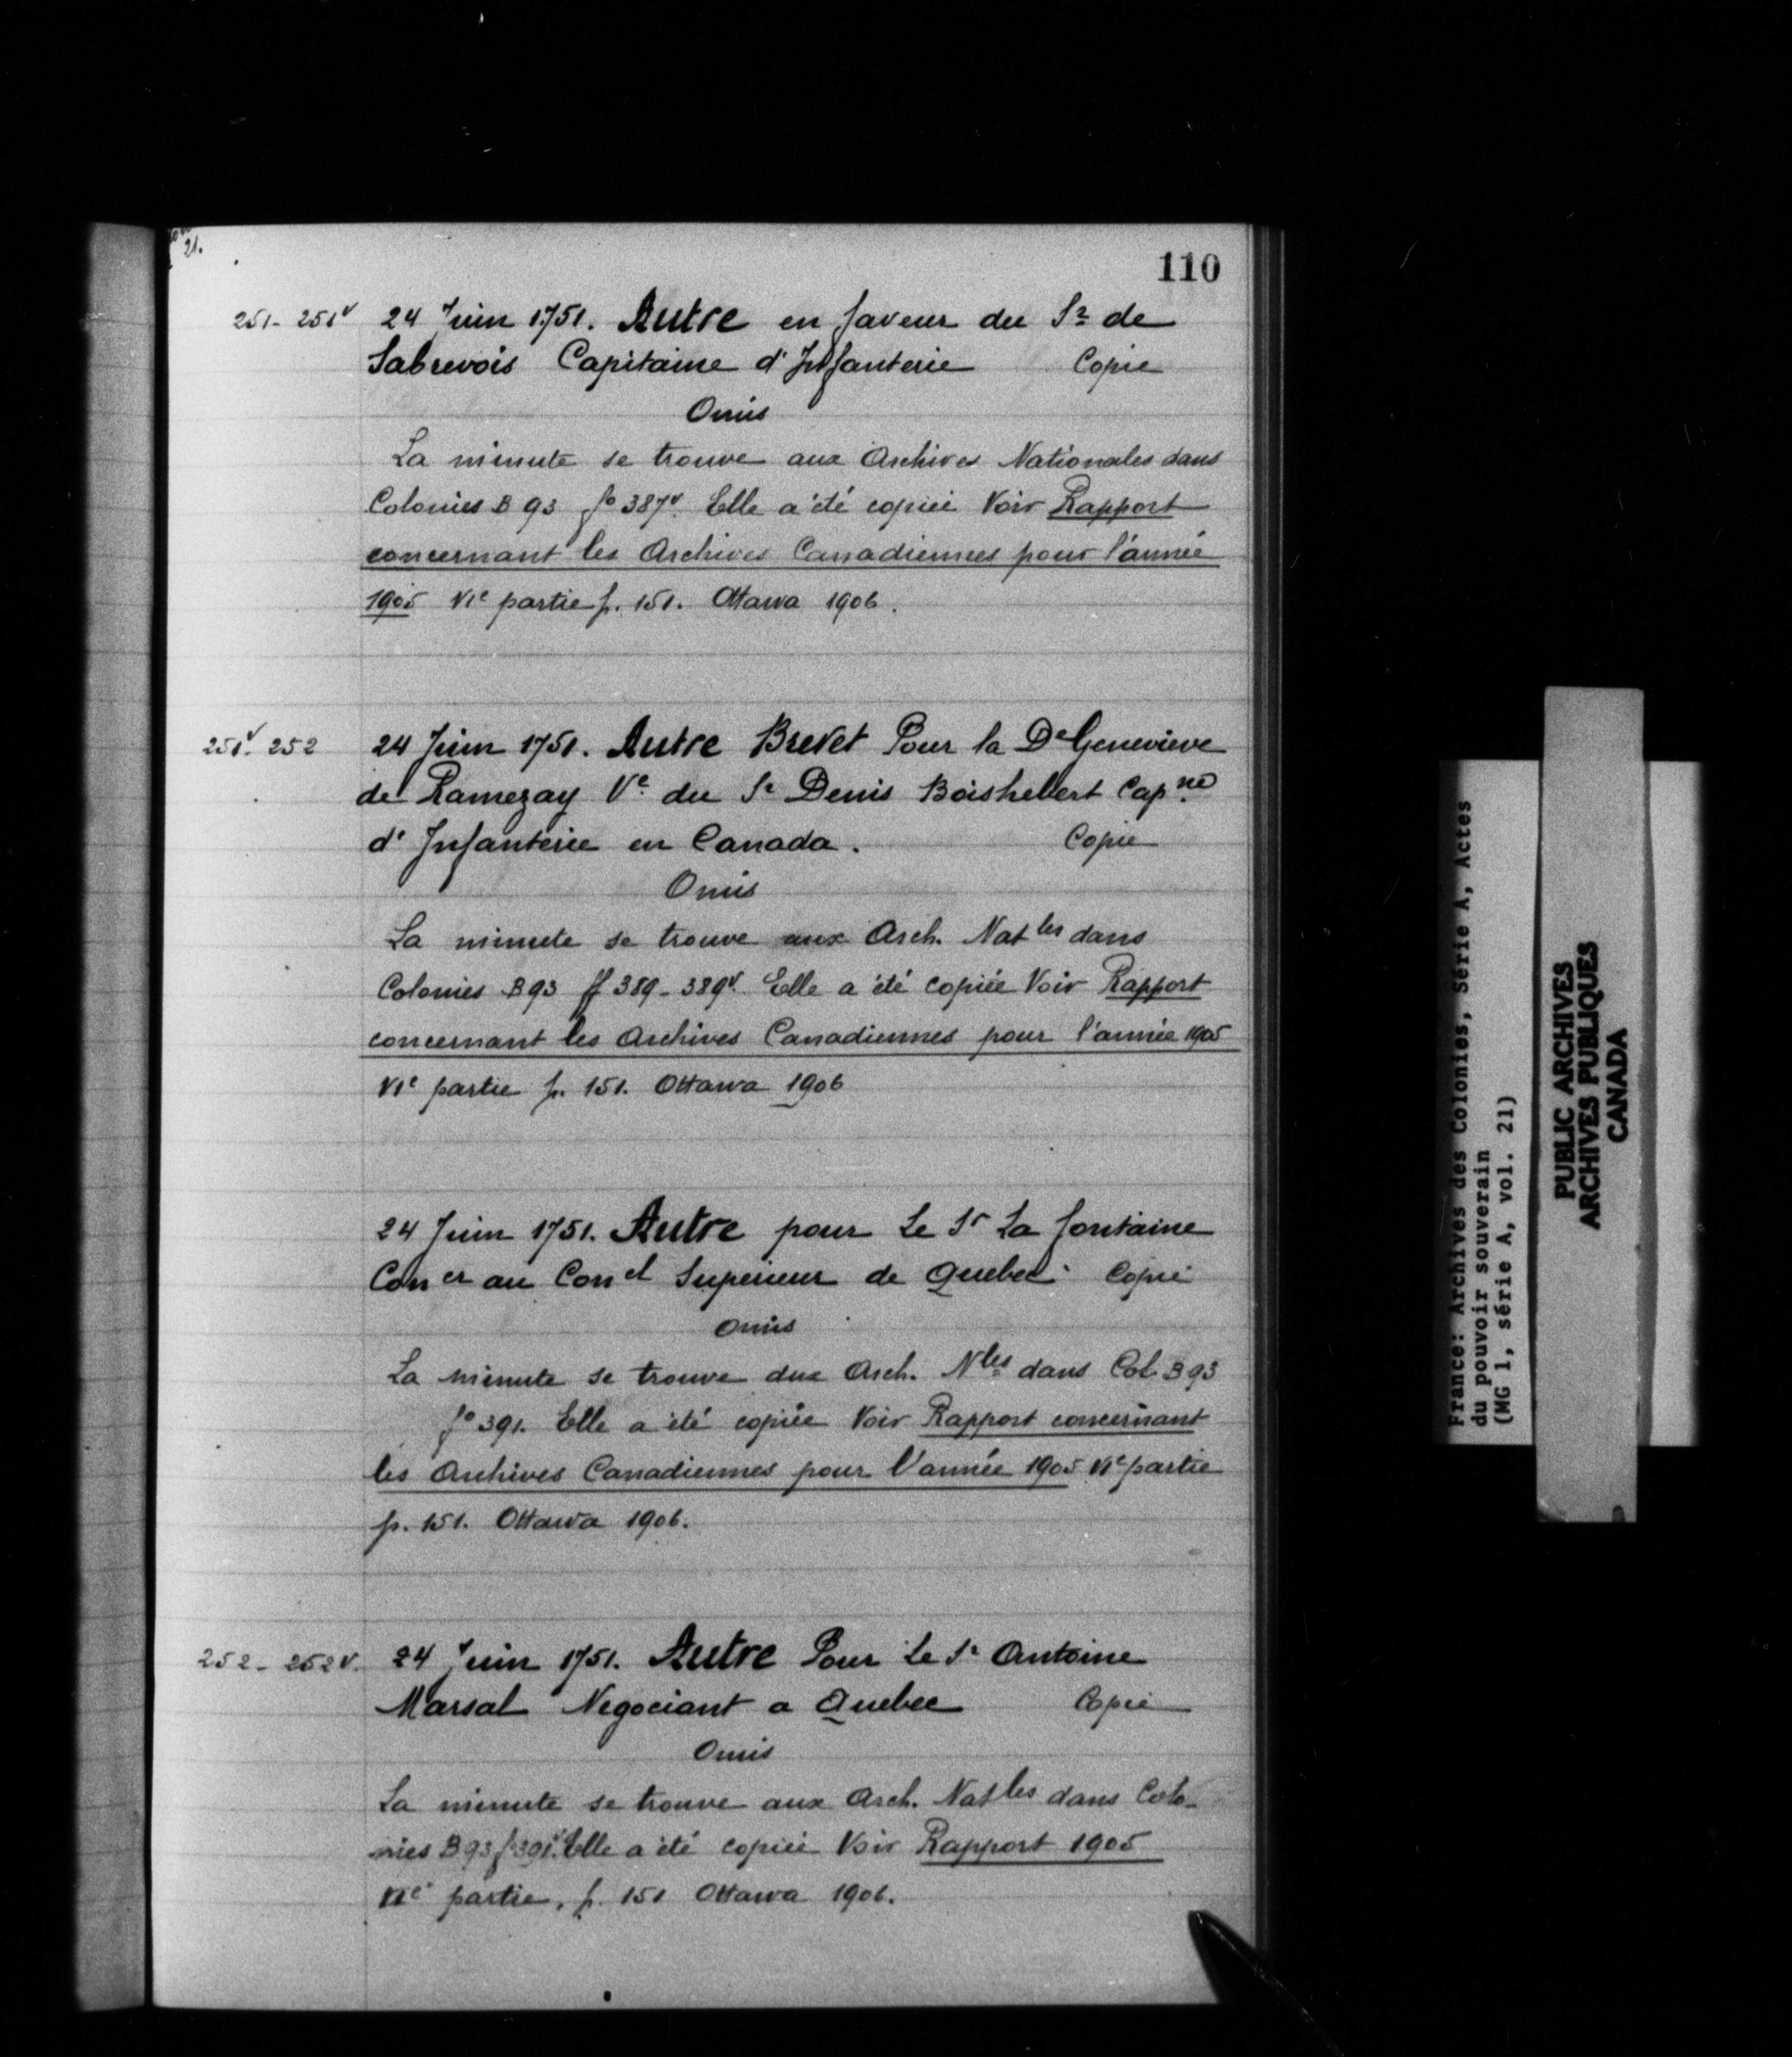 21.
110
251-251v 24 Juin 1751. Autre en faveur du Sr de
Sabrevois Capitaine d'Infanterie Copie
Omis
La minute se trouve aux Archives Nationales dans
Colonies B 93 fo 387v. Elle a été copiée Voir Rapport
concernant les Archives Canadiennes pour l'année
1905 VIe partie p. 151. Ottawa 1906.
251v. 252 24 Juin 1751. Autre Brevet Pour la De Genevieve
de Ramezay Ve du Sr Denis Boishebert Capne
d'Infanterie en Canada. Copie
Omis
La minute se trouve aux Arch. Natles dans
Colonies B 93 ff 389-389v. Elle a été copiée Voir Rapport
concernant les Archives Canadiennes pour l'année 1905
VIe partie p. 151. Ottawa 1906
24 Juin 1751. Autre pour Le Sr La fontaine
Coner au Conel Superieur de Quebec. Copie
Omis
La minute se trouve aux Arch. Nles dans Col. B 93
fo 391. Elle a été copiée Voir Rapport concernant
les Archives Canadiennes pour l'année 1905 VIe partie
p. 151. Ottawa 1906.
252-252v. 24 Juin 1751. Autre Pour Le Sr Antoine
Marsal Negociant a Quebec Copie
Omis
La minute se trouve aux Arch. Natles dans Colo-
nies B 93 fo 391v. Elle a été copiée Voir Rapport 1905
VIe partie, p. 151 Ottawa 1906.
France: Archives des Colonies, Série A, Actes
du pouvoir souverain
(MG 1, série A, vol. 21)
PUBLIC ARCHIVES
ARCHIVES PUBLIQUES
CANADA